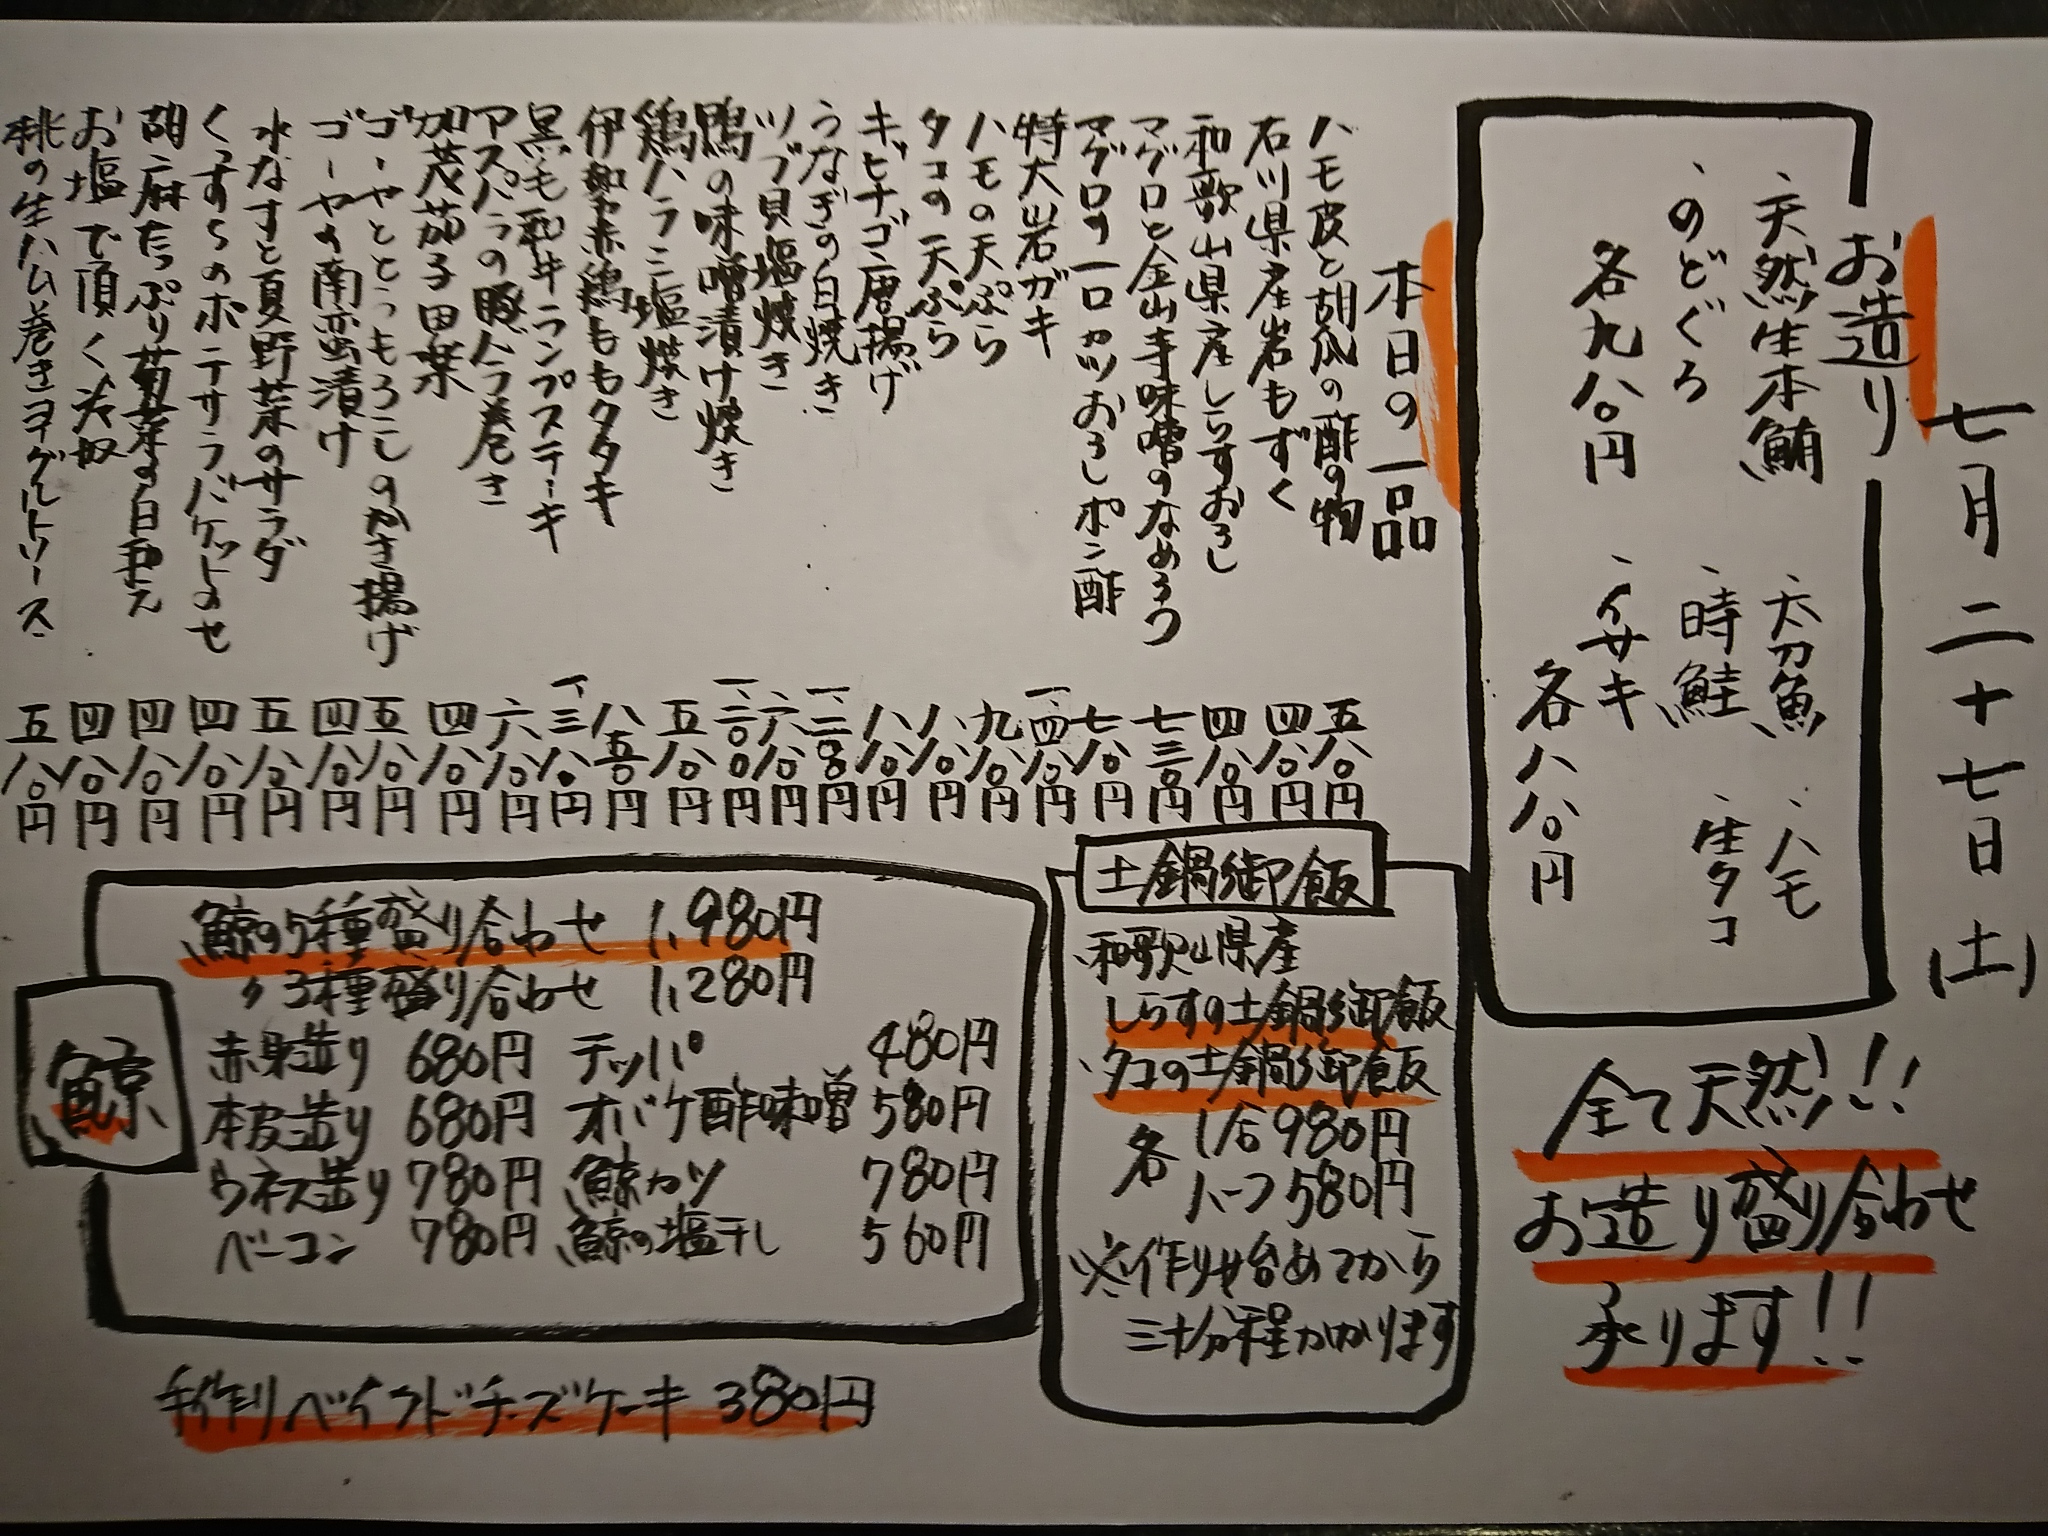 七月二十七日(土)
お造り
、天然生本鮪
、のどぐろ
各九八〇円
、太刀魚
、ハモ
、時鮭
、生タコ
、イサキ
各八八〇円
全て天然!!
お造り盛り合わせ
承ります!!
本日の一品
ハモ皮と胡瓜の酢の物 五八〇円
石川県産岩もずく 四八〇円
和歌山県産しらすおろし 四八〇円
マグロと金山寺味噌のなめろう 七三〇円
マグロの一口カツおろしポン酢 七八〇円
特大岩ガキ 一、四八〇円
ハモの天ぷら 九八〇円
タコの天ぷら 八八〇円
キビナゴ唐揚げ 八八〇円
うなぎの白焼き 一、二八〇円
ツブ貝塩焼き 六八〇円
鴨の味噌漬け焼き 一、二〇〇円
鶏ハラミ塩焼き 五八〇円
伊勢赤鶏ももタタキ 八五〇円
黒毛和牛ランプステーキ 一、三八〇円
アスパラの豚バラ巻き 六八〇円
加茂茄子田楽 四八〇円
ゴーヤととうもろこしのかき揚げ 五八〇円
ゴーヤの南蛮漬け 四八〇円
水なすと夏野菜のサラダ 五八〇円
くっすらのポテサラバケットのせ 四八〇円
胡麻たっぷり菊菜の白和え 四八〇円
お塩で頂く冷奴 四八〇円
桃の生ハム巻きヨーグルトソース 五八〇円
土鍋御飯
、和歌山県産
しらすの土鍋御飯
、タコの土鍋御飯
各 1合980円
ハーフ580円
※作り始めてから
三十分程かかります
鯨
鯨の5種盛り合わせ 1,980円
〃 3種盛り合わせ 1,280円
赤身造り 680円 テッパ 480円
本皮造り 680円 オバケ酢味噌 580円
ウネス造り 780円 鯨カツ 780円
ベーコン 780円 鯨の塩干し 560円
手作りベイクドチーズケーキ 380円